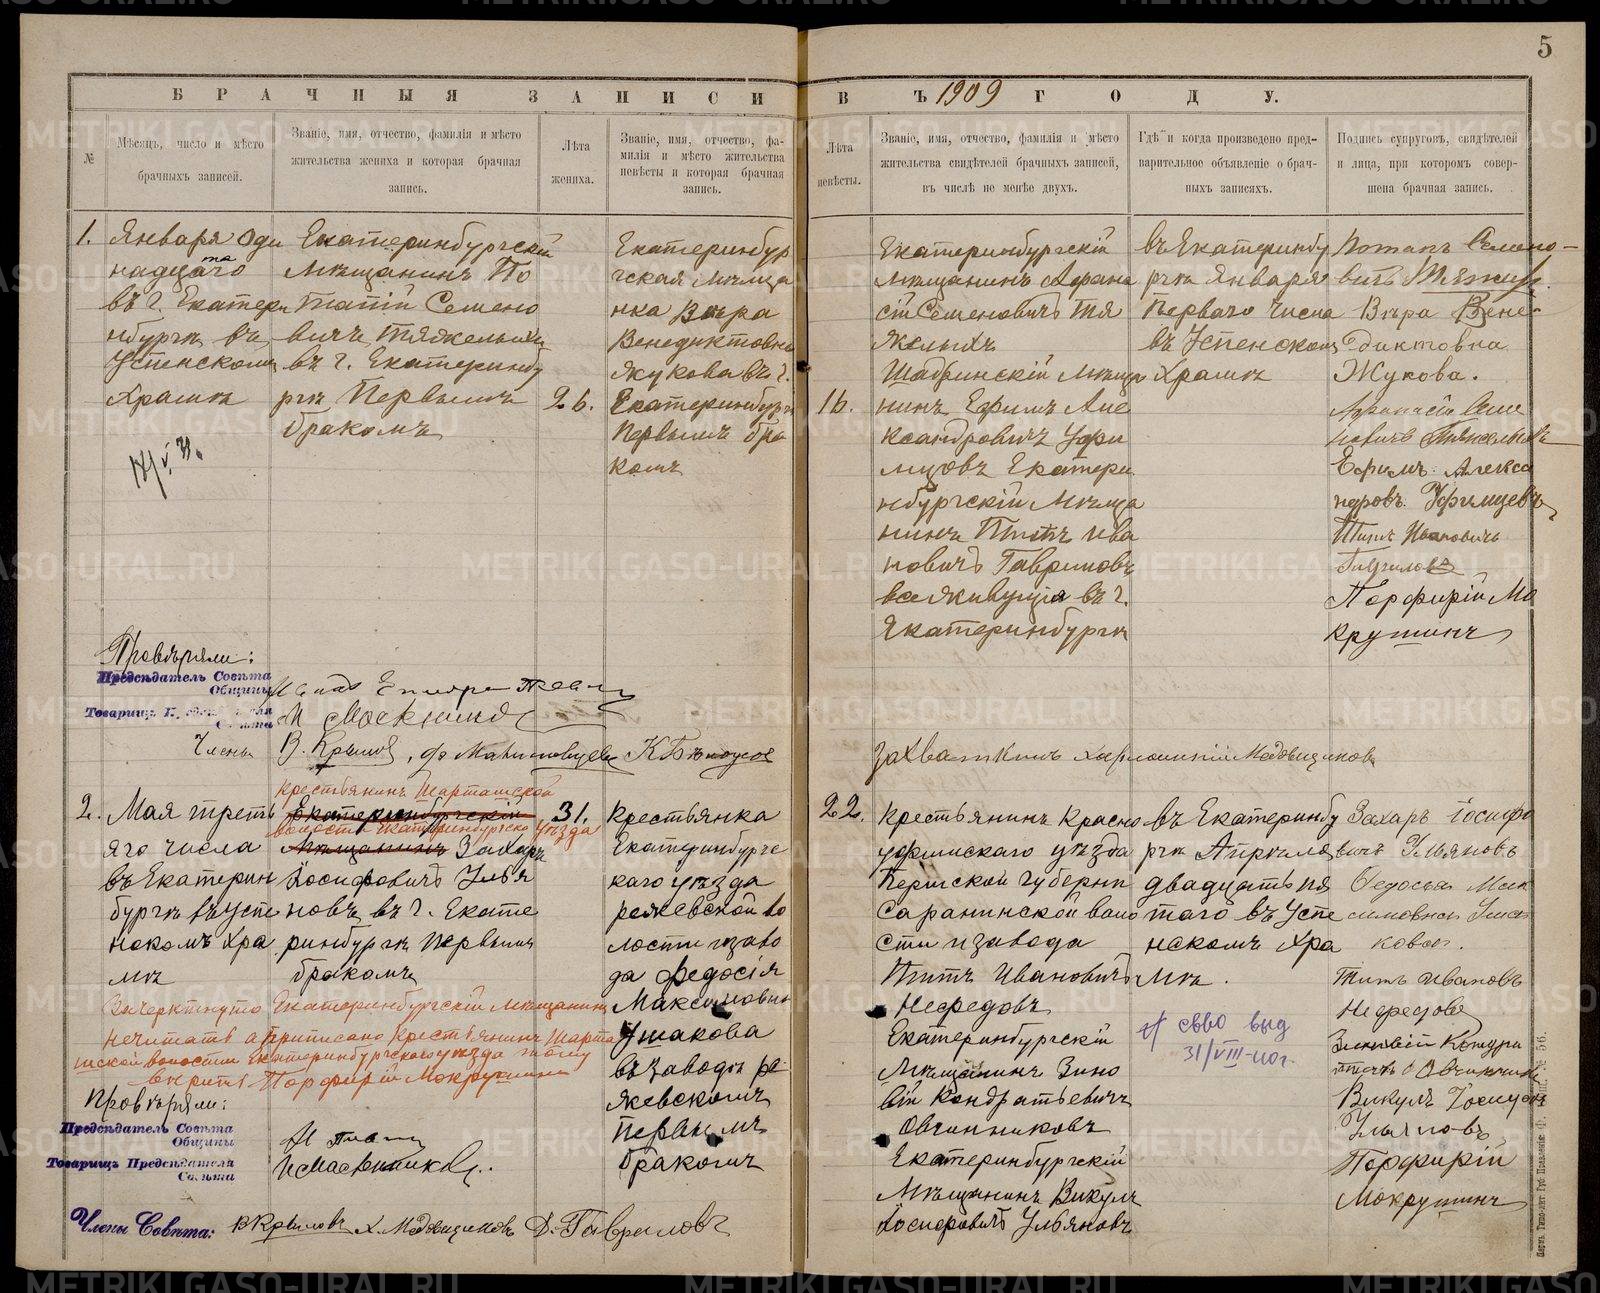 5
БРАЧНЫЯ ЗАПИСИ ВЪ 1909 ГОДУ.
№
Мѣсяцъ, число и мѣсто
брачныхъ записей.
Званіе, имя, отчество, фамилія и мѣсто
жительства жениха и которая брачная
запись.
Лѣта
жениха.
Званіе, имя, отчество, фа-
милія и мѣсто жительства
невѣсты и которая брачная
запись.
Лѣта
невѣсты.
Званіе, имя, отчество, фамилія и мѣсто
жительства свидѣтелей брачныхъ записей,
въ числѣ не менѣе двухъ.
Гдѣ и когда произведено пред-
варительное объявленіе о брач-
ныхъ записяхъ.
Подпись супруговъ, свидѣтелей
и лица, при которомъ совер-
шена брачная запись.
1.
Января Оди
надцато
въ г. Екатери
нбургѣ въ
Успенскомъ
Храмѣ
Екатеринбургскій
Мѣщанинъ По
тапій Семено
вичъ Тяжелыхъ
въ г. Екатеринбу
ргѣ Первымъ
бракомъ
26.
Екатеринбур
гская мѣща
нка Вѣра
Венедиктовна
Жукова въ г.
Екатеринбургѣ
Первымъ бра
комъ
16.
Екатеринбургскій
мѣщанинъ Афана
сій Семеновичъ Тя
желыхъ
Шадринскій мѣща
нинъ Ефимъ Але
ксандровичъ Уфи
мцовъ Екатери
нбургскій Мѣща
нинъ Титъ Ива
новичъ Гавриловъ
все живущія въ г.
Екатеринбургѣ
въ Екатеринбу
ргѣ Января
Перваго Числа
въ Успенскомъ
Храмѣ
Потапъ Семено-
вичъ
Вѣра Вене-
диктовна
Жукова.
Афанасій Семе
новичъ Тяжелыхъ
Ефимъ Алекса
ндровъ Уфимцевъ
Титъ Ивановичъ
Гавриловъ
Порфирій Мо
крушинъ
Провѣряли:
Предсѣдатель Совѣта
Общины
Товарищъ Предсѣдателя
Совѣта
Члены В. Крыловъ
К Бѣлоусов
Захваткинъ Харлампій Медвѣщиковъ
2.
Мая треть
яго числа
въ Екатерин
бургѣ въ Успе
нскомъ Хра
мѣ
крестьянинъ Шарташской
Екатеринбургскій
волости Екатеринбургскаго уѣзда
Мѣщанинъ Захаръ
Іосифовичъ Улья
новъ въ г. Екате
ринбургѣ Первымъ
бракомъ
31.
крестьянка
Екатеринбургс
каго уѣзда
режевской во
лости и заво
да Федосія
Максимовна
Ушакова
въ заводѣ ре
жевскомъ
Первымъ
бракомъ
22.
Крестьянинъ Красно
уфимскаго уѣзда
Пермской губерни
Саранинской воло
сти и завода
Титъ Ивановичъ
Нефедовъ
Екатеринбургскій
Мѣщанинъ Зино
вій Кондратьевичъ
Овчинниковъ
Екатеринбургскій
Мѣщанинъ Викулъ
Іосифовичъ Ульяновъ
въ Екатеринбу
ргѣ Апрѣля
двадцать пя
таго въ Успе
нскомъ Хра
мѣ.
выд
31/VIII-10г.
Захаръ Іосифо
вичъ Ульяновъ
Федосья Мак
симовна Уша
кова.
Титъ Ивановъ
Нефедовъ
Зиновій Кондра
Овчинниковъ
Викулъ Іосифов
Ульяновъ
Порфирій
Мокрушинъ
Зачеркнуто Екатеринбургскій Мѣщанинъ
нечитать а приписано Крестьянинъ Шарта
шской волости Екатеринбургскаго уѣзда тому
вѣрить Порфирій Мокрушинъ
Провѣряли:
Предсѣдатель Совѣта
Общины
Товарищъ Предсѣдателя
Совѣта
Члены Совѣта: В Крыловъ Х. Медвѣщиковъ Д. Гавриловъ
METRIKI.GASO-URAL.RU